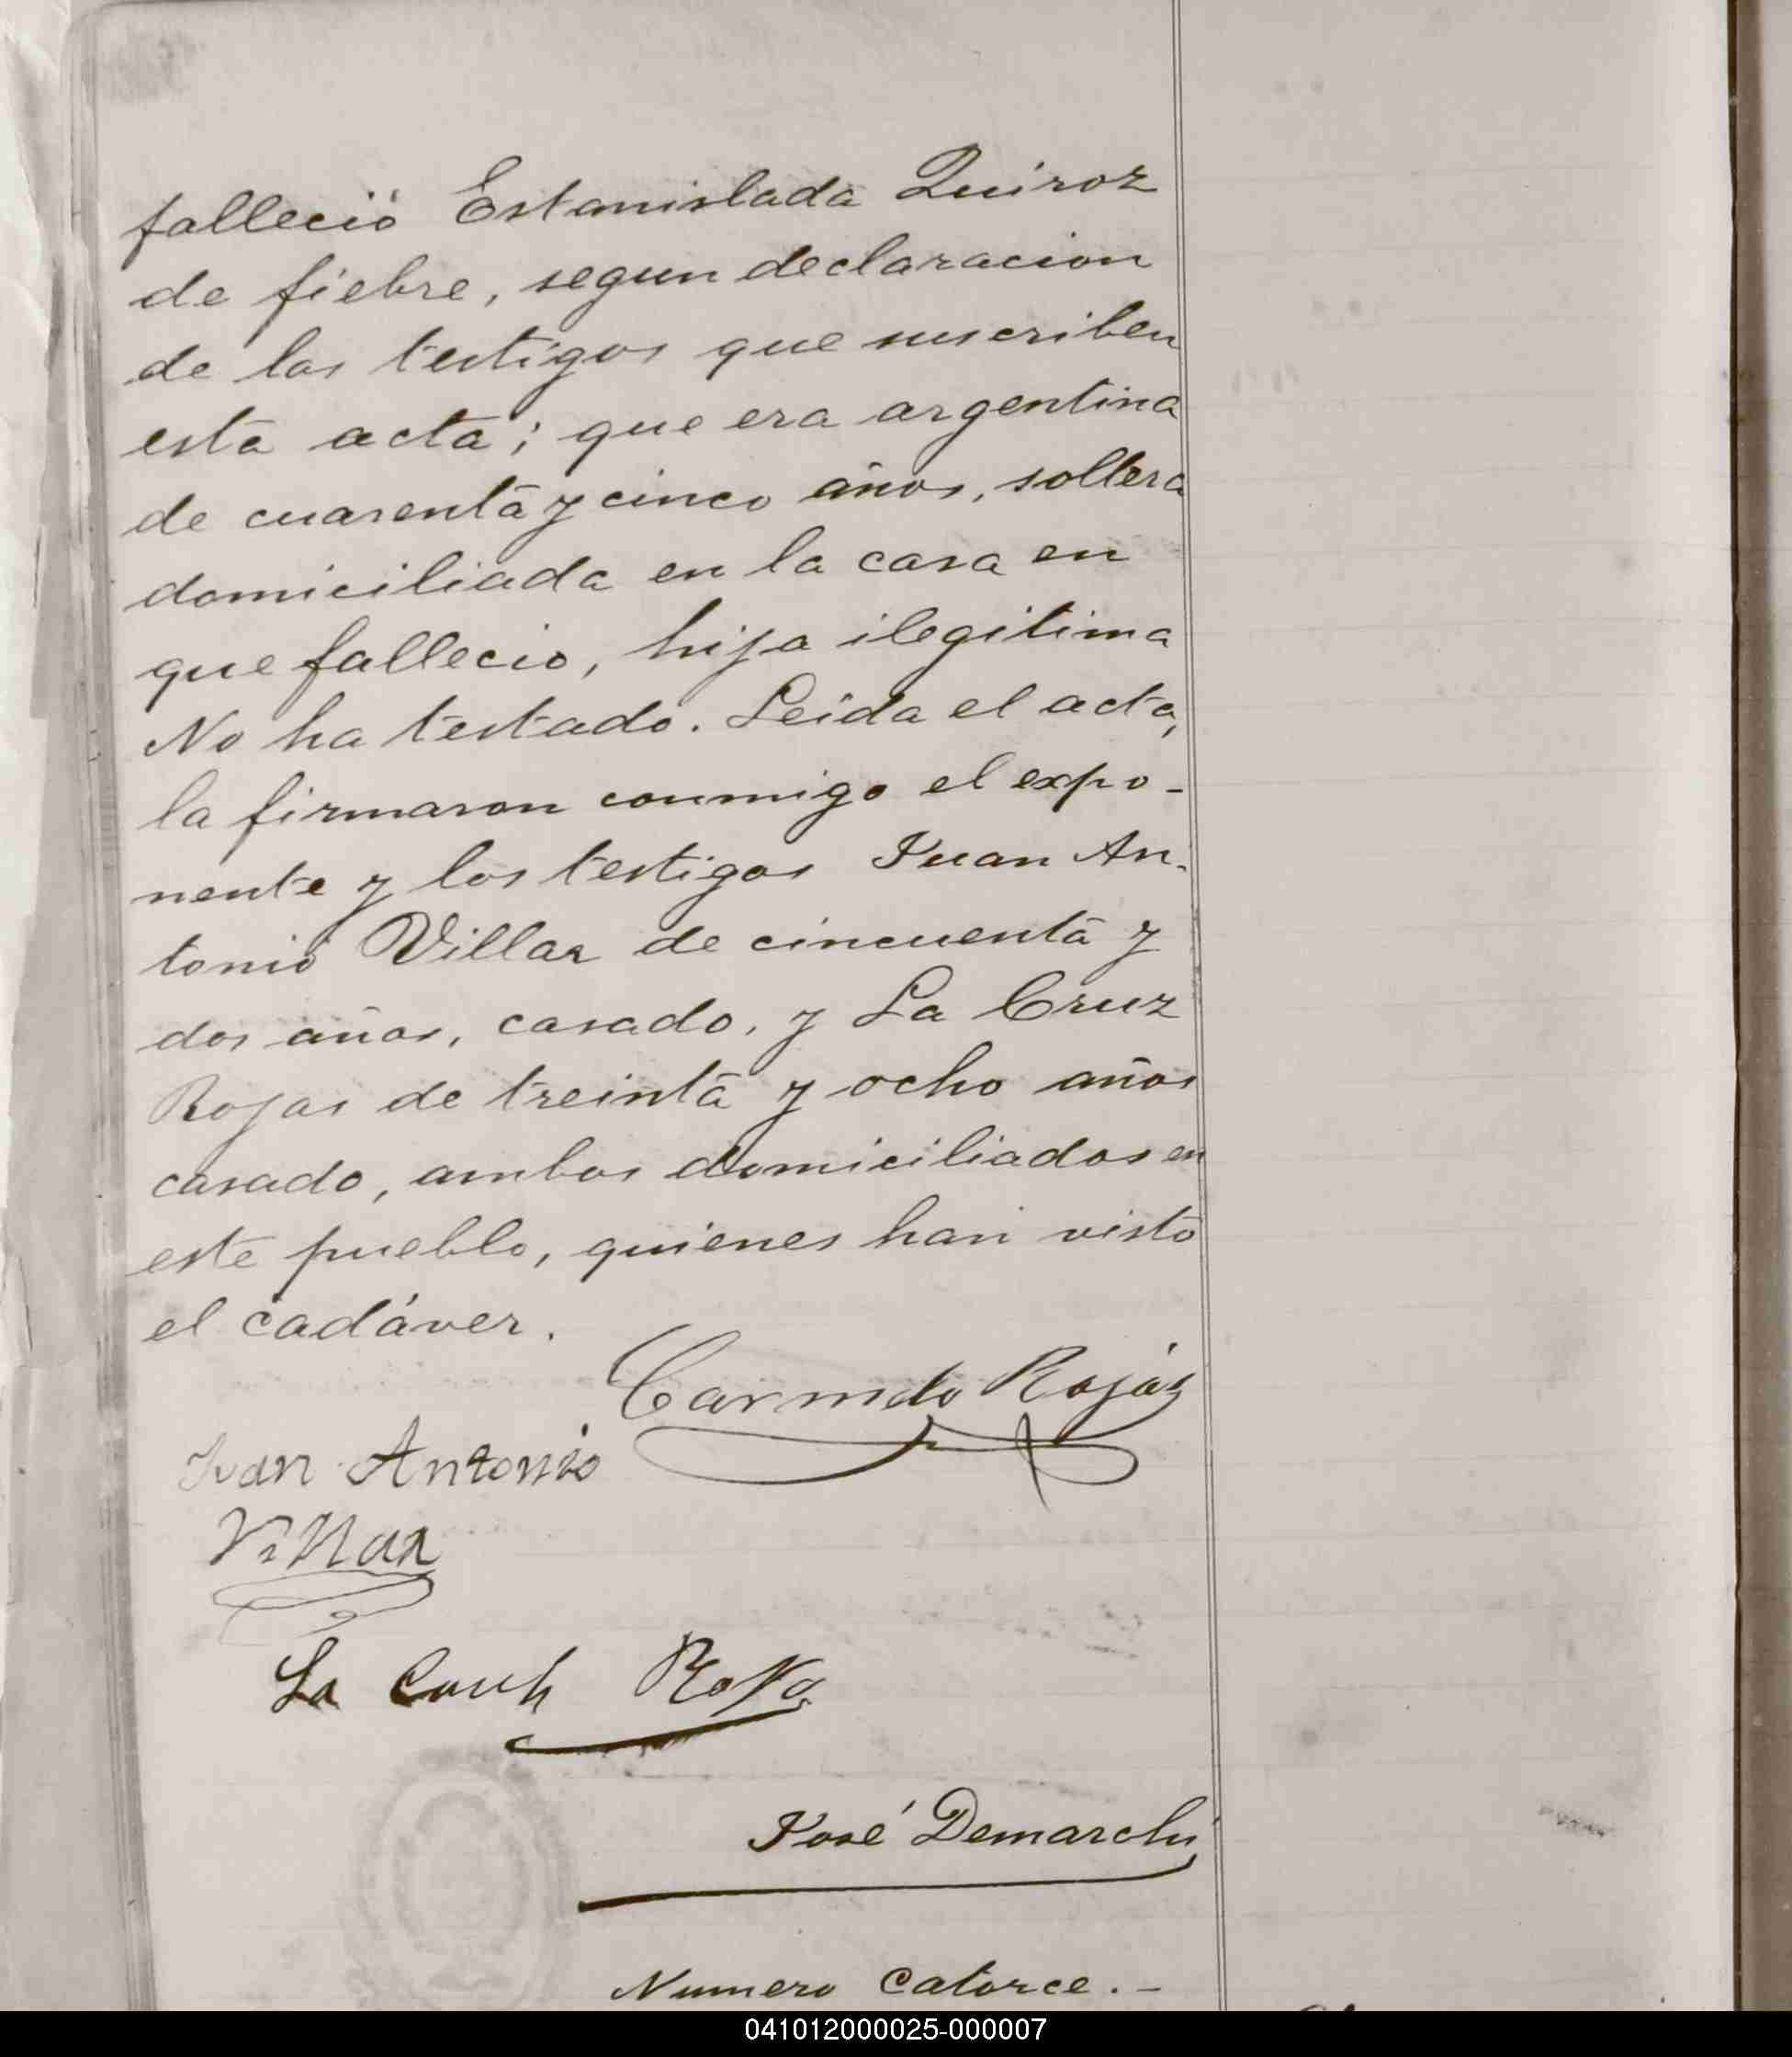 falleció Estanislada Quiroz
de fiebre, segun declaracion
de los testigos que suscriben
esta acta; que era argentina
de cuarenta y cinco años, soltera
domiciliada en la casa en
que fallecio, hija ilegitima
No ha testado. Leida el acta,
la firmaron conmigo el expo-
nente y los testigos Juan An-
tonio Villar de cincuenta y
dos años, casado, y La Cruz
Rojas de treinta y ocho años
casado, ambos domiciliados en
este pueblo, quienes han visto
el cadáver.
Rojas
Juan Antonio
Villar
La
José Demarchi
Numero Catorce.-
041012000025-000007